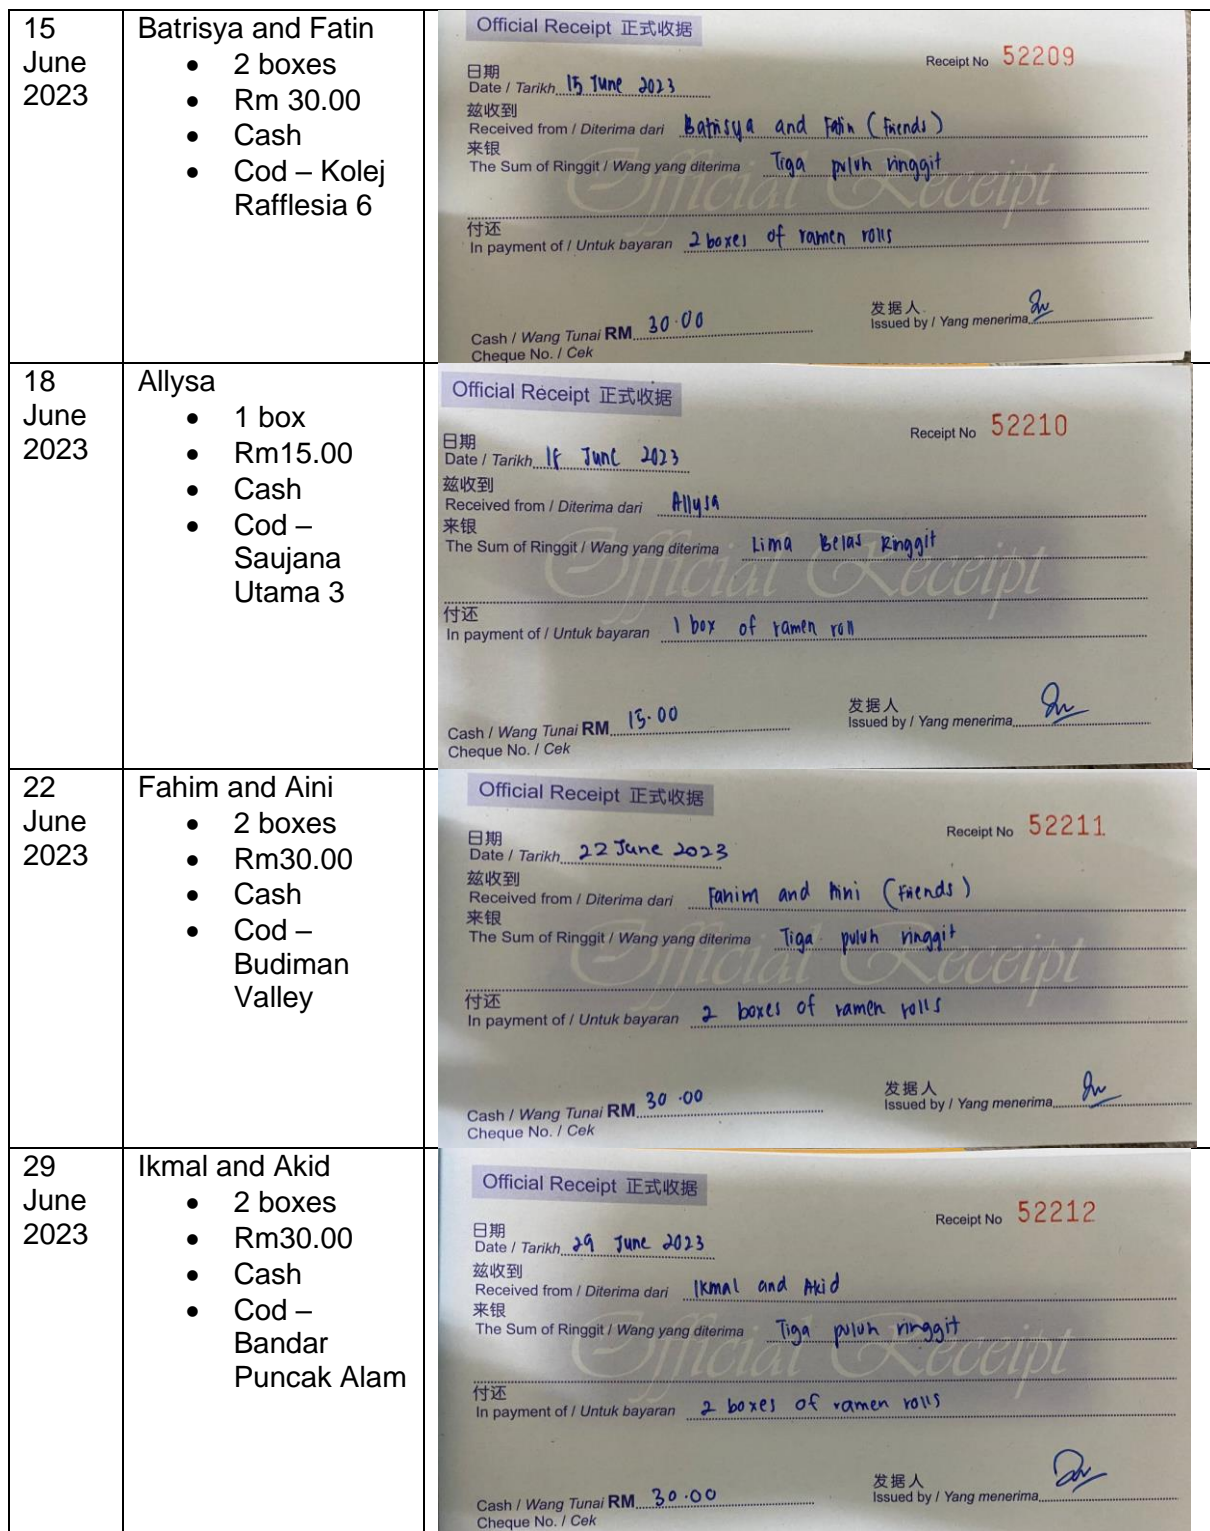 15
June
2023
Batrisya and Fatin
• 2 boxes
• Rm 30.00
• Cash
• Cod – Kolej
Rafflesia 6
Official Receipt 正式收据
Receipt No 52209
日期
Date / Tarikh 15 June 2023
兹收到
Received from / Diterima dari Batrisya and Fatin (Friends)
来银
The Sum of Ringgit / Wang yang diterima Tiga puluh ringgit
Official Receipt
付还
In payment of / Untuk bayaran 2 boxes of ramen rolls
发据人
Cash / Wang Tunai RM 30.00 Issued by / Yang menerima
Cheque No. / Cek
18
June
2023
Allysa
• 1 box
• Rm15.00
• Cash
• Cod –
Saujana
Utama 3
Official Receipt 正式收据
Receipt No 52210
日期
Date / Tarikh 18 June 2023
兹收到
Received from / Diterima dari Allysa
来银
The Sum of Ringgit / Wang yang diterima Lima Belas Ringgit
Official Receipt
付还
In payment of / Untuk bayaran 1 box of ramen roll
发据人
Cash / Wang Tunai RM 15.00 Issued by / Yang menerima
Cheque No. / Cek
22
June
2023
Fahim and Aini
• 2 boxes
• Rm30.00
• Cash
• Cod –
Budiman
Valley
Official Receipt 正式收据
Receipt No 52211
日期
Date / Tarikh 22 June 2023
兹收到
Received from / Diterima dari Fahim and Aini (Friends)
来银
The Sum of Ringgit / Wang yang diterima Tiga puluh ringgit
Official Receipt
付还
In payment of / Untuk bayaran 2 boxes of ramen rolls
发据人
Cash / Wang Tunai RM 30.00 Issued by / Yang menerima
Cheque No. / Cek
29
June
2023
Ikmal and Akid
• 2 boxes
• Rm30.00
• Cash
• Cod –
Bandar
Puncak Alam
Official Receipt 正式收据
Receipt No 52212
日期
Date / Tarikh 29 June 2023
兹收到
Received from / Diterima dari Ikmal and Akid
来银
The Sum of Ringgit / Wang yang diterima Tiga puluh ringgit
Official Receipt
付还
In payment of / Untuk bayaran 2 boxes of ramen rolls
发据人
Cash / Wang Tunai RM 30.00 Issued by / Yang menerima
Cheque No. / Cek